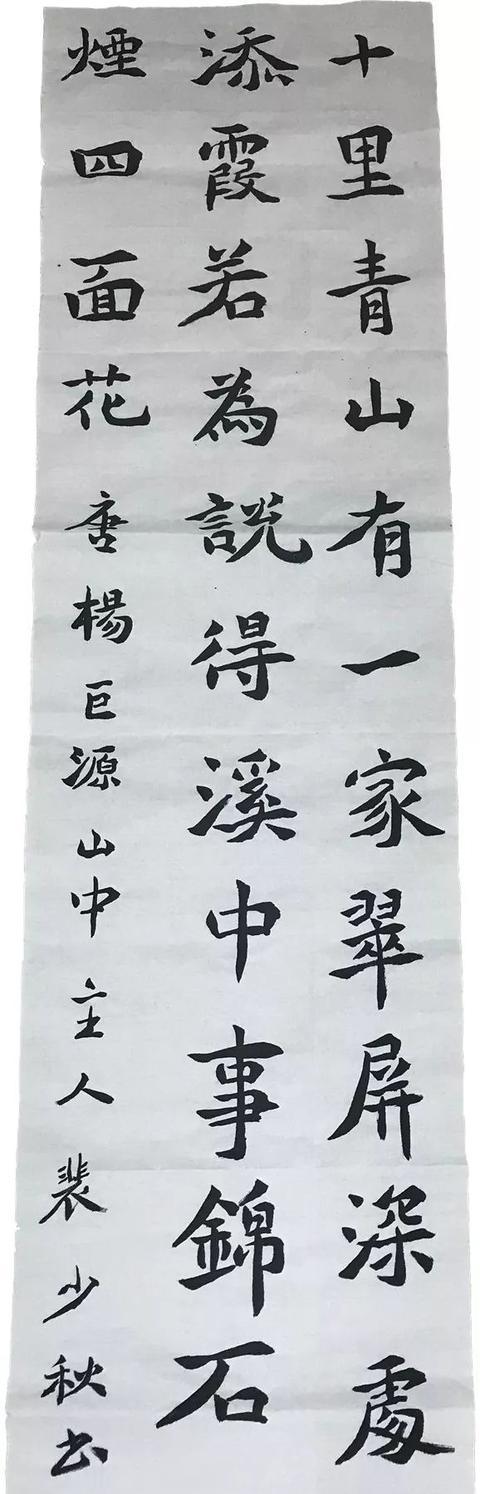 十里青山有一家翠屏深處
添霞若為說得溪中事錦石
煙四面花 唐楊巨源山中主人裴少秋书